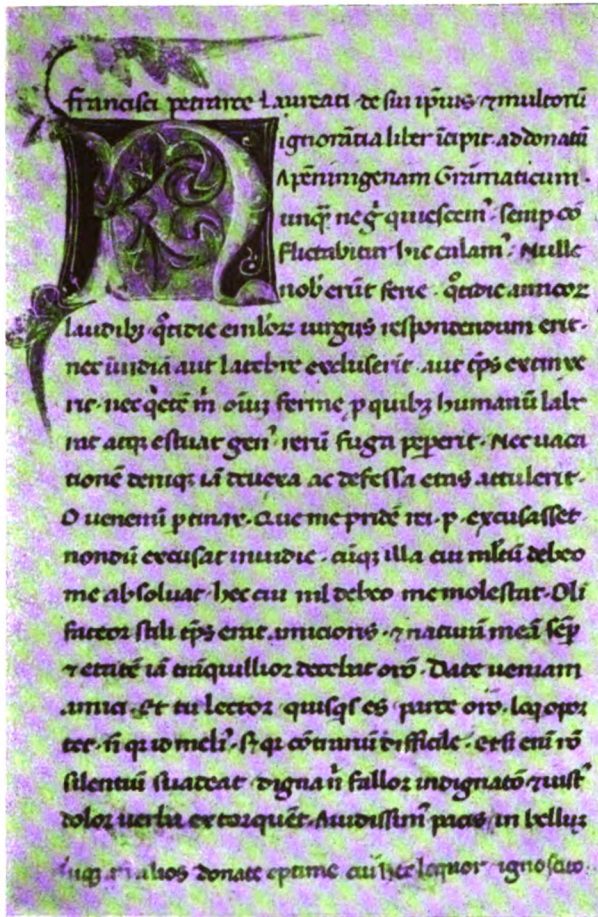 francisci petrarce Laureati de sui ip̄ius ⁊ multorū
ignorātia liber īcipit ad donatū
Apēninigenam Grāmaticum.
unq̄ ne quiescem⁹ semp cō
flictabitur hic calam⁹. Nulle
nob̄ erūt ferie. q̊tidie amicoꝝ
laudibꝫ q̊tidie eml̄oꝝ iurgijs respondendum erit.
nec īuidiā aut latebre excluserit. aut tp̄s extinxe
rit. nec q̄etē m̄ oīuꝫ ferme p quibꝫ humanū labo
rat atqꝫ estuat gen⁹ rerū fuga pepererit. Nec uaca
tionē deniqꝫ iā deuexa ac defessa etas attulerit.
O uenenū ptinax. Que me pridē rei. p. excusasset
nondū excusat inuidie. cūqꝫ illa cui ml̄tū debeo
me absoluat. hec cui nil debeo me molestat. Oli
fateor stili tp̄s erat amicioris. ⁊ naturā meā sēp
⁊ etatē iā trāquillior decebat orō. Date ueniam
amici. Et tu lector quisqꝫ es parce orō. loq̄ opor
tet. difficile. etsi eni rō
silentiū suadeat digna fallor indignatō ⁊ iust⁹
dolor uerba extorquēt. Auidissim⁹ pacis in bellū
alios donate optime cui hec loquor ignoscito.